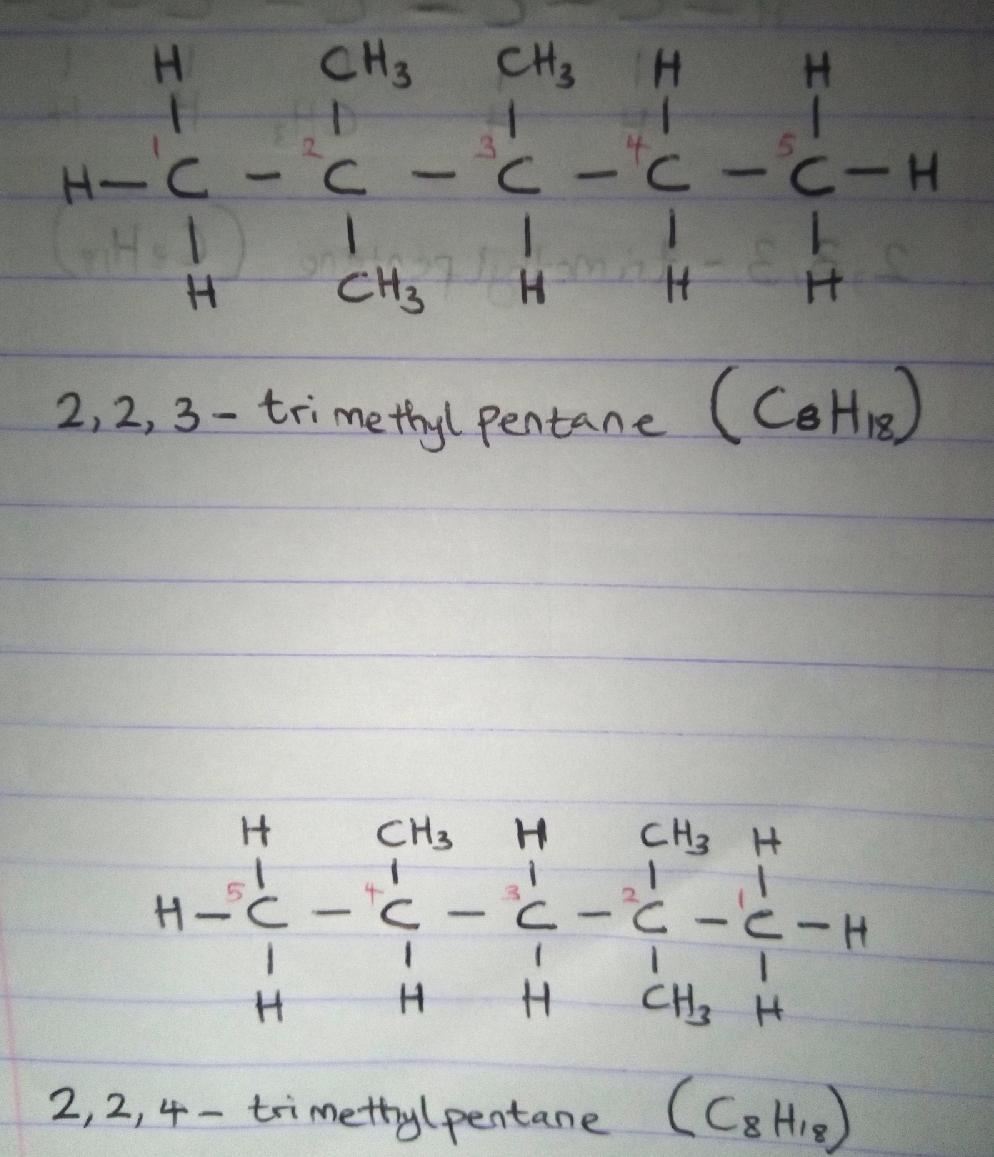 H CH3 CH3 H H
H - 1C - 2C - 3C - 4C - 5C - H
H CH3 H H H
2,2,3 - trimethylpentane (C8H18)
H CH3 H CH3 H
H - 5C - 4C - 3C - 2C - 1C - H
H H H CH3 H
2,2,4 - trimethylpentane (C8H18)